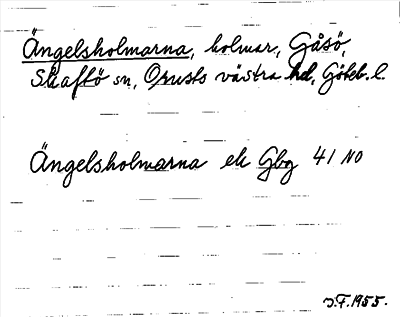 Ängelsholmarna, holmar, Gåsö,
Skaftö sn, Orusts västra hd, Göteb. l.
Ängelsholmarna ek Gbg 41 NO
J.F. 1955.